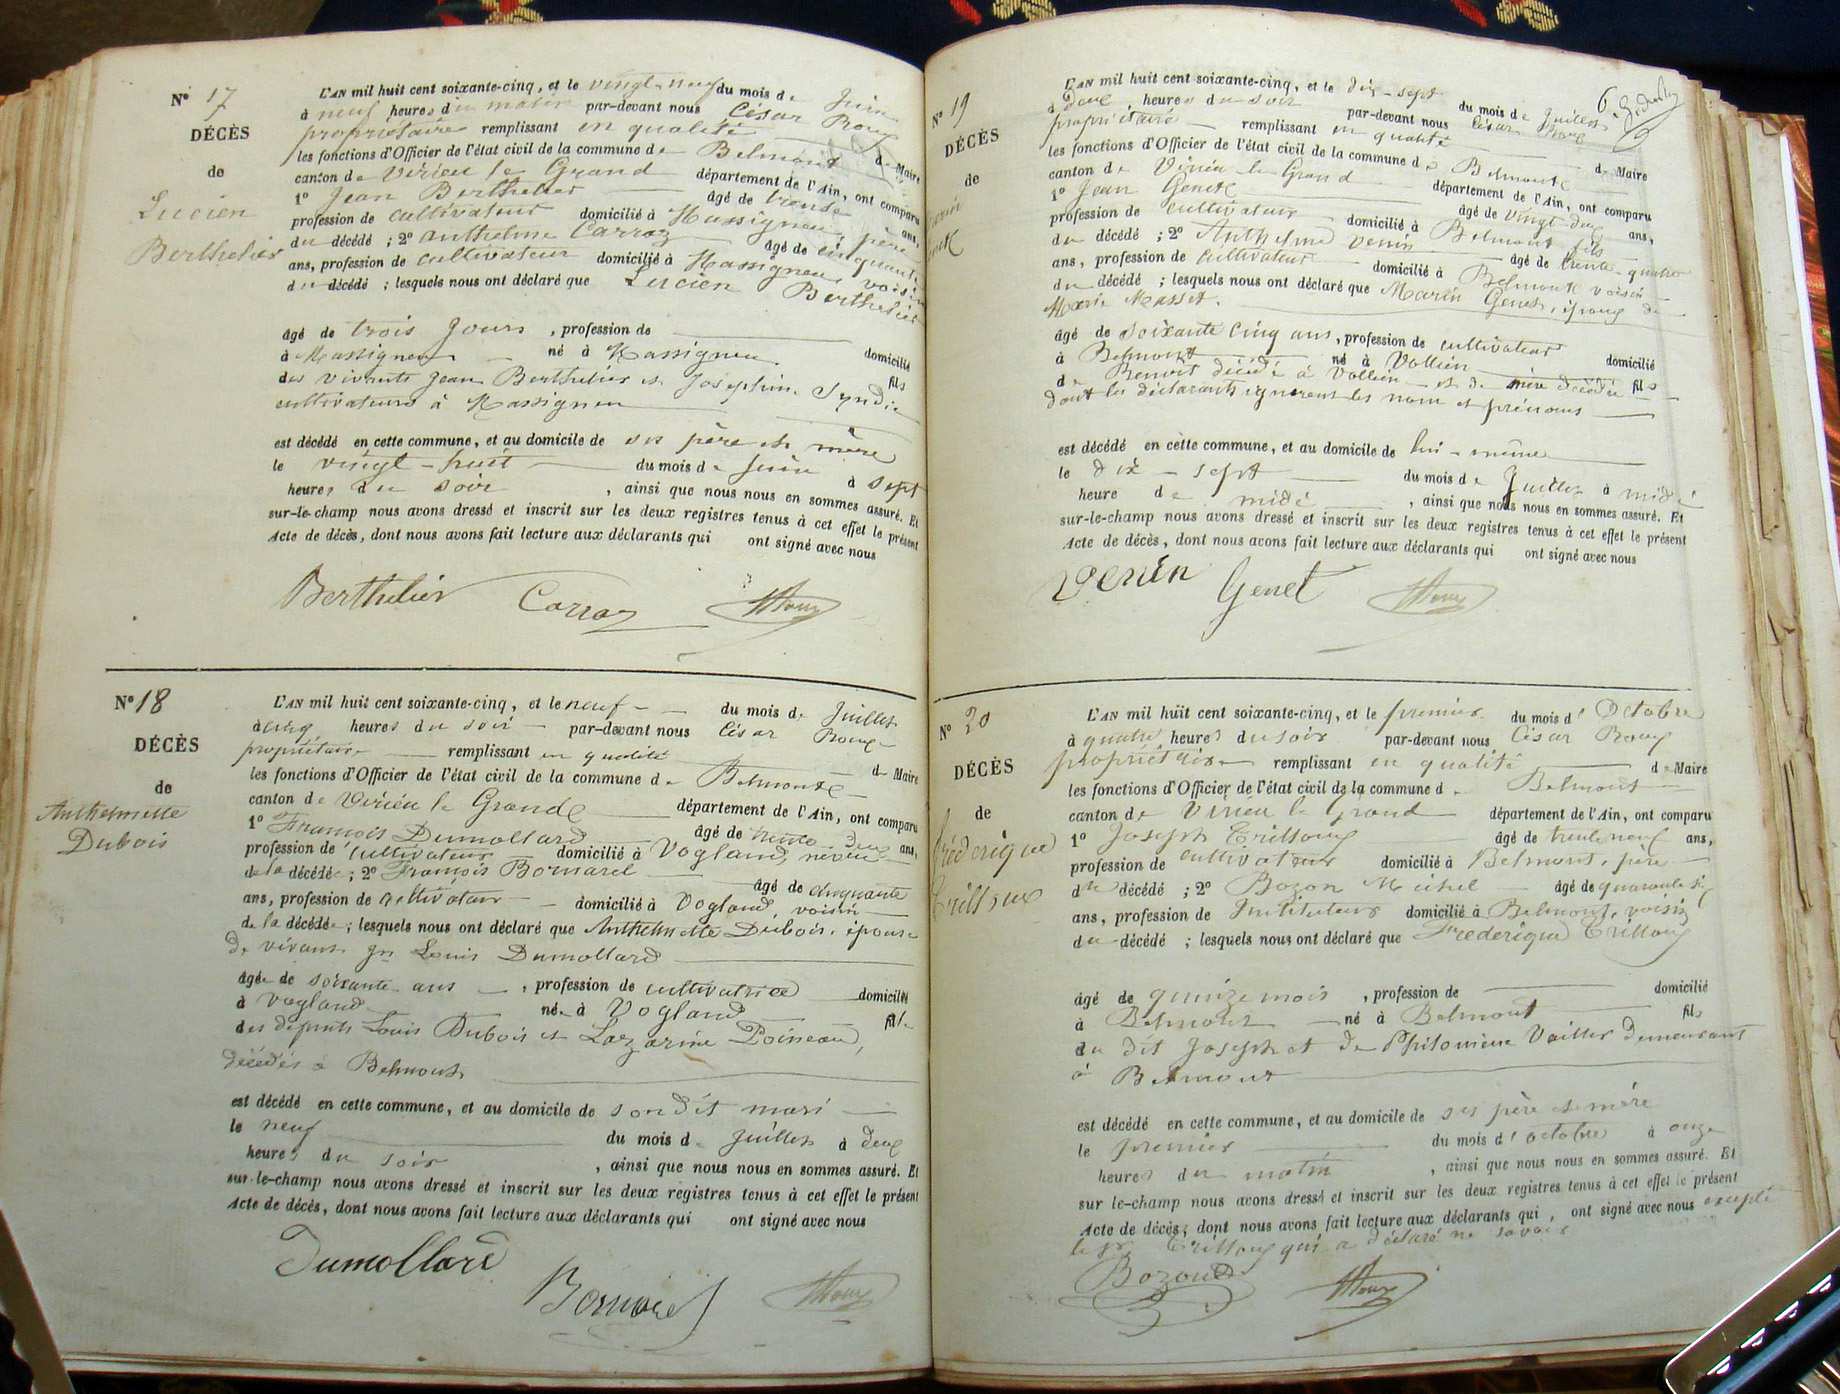 N° 17
DÉCÈS
de
Lucien
Berthelier
L'AN mil huit cent soixante-cinq, et le vingt-neuf du mois de Juin
à neuf heures du matin par-devant nous César Roux
propriétaire remplissant en qualité de Maire
les fonctions d'Officier de l'état civil de la commune de Belmont
canton de Virieu le Grand département de l'Ain, ont comparu
1° Jean Berthelier âgé de trente ans,
profession de cultivateur domicilié à Massigneu, père
du décédé ; 2° Anthelme Carraz âgé de cinquante
ans, profession de cultivateur domicilié à Massigneu, voisin
du décédé ; lesquels nous ont déclaré que Lucien Berthelier
âgé de trois jours , profession de domicilié
à Massigneu né à Massigneu fils
des vivants Jean Berthelier et Joséphine Syndic
cultivateurs à Massigneu
est décédé en cette commune, et au domicile de ses père et mère
le vingt-huit du mois de Juin à sept
heures du soir , ainsi que nous nous en sommes assuré. Et
sur-le-champ nous avons dressé et inscrit sur les deux registres tenus à cet effet le présent
Acte de décès, dont nous avons fait lecture aux déclarants qui ont signé avec nous
Berthelier Carraz Roux
N° 18
DÉCÈS
de
Anthelmette
Dubois
L'AN mil huit cent soixante-cinq, et le neuf du mois de Juillet
à cinq heures du soir par-devant nous César Roux
propriétaire remplissant en qualité de Maire
les fonctions d'Officier de l'état civil de la commune de Belmont
canton de Virieu le Grand département de l'Ain, ont comparu
1° François Dumollard âgé de trente-deux ans,
profession de cultivateur domicilié à Vogland, neveu
de la décédée ; 2° François Bornarel âgé de cinquante
ans, profession de cultivateur domicilié à Vogland, voisin
de la décédée ; lesquels nous ont déclaré que Anthelmette Dubois, épouse
de vivant Jn Louis Dumollard
âgée de soixante ans , profession de cultivatrice domiciliée
à Vogland née à Vogland fille
des défunts Louis Dubois et Lazarine Poineau,
décédés à Belmont
est décédé en cette commune, et au domicile de son dit mari
le neuf du mois de Juillet à deux
heures du soir , ainsi que nous nous en sommes assuré. Et
sur-le-champ nous avons dressé et inscrit sur les deux registres tenus à cet effet le présent
Acte de décès, dont nous avons fait lecture aux déclarants qui ont signé avec nous
Dumollard Bornarel Roux
6
N° 19
DÉCÈS
de
L'AN mil huit cent soixante-cinq, et le dix-sept du mois de Juillet
à deux heures du soir par-devant nous César Roux
propriétaire remplissant en qualité de Maire
les fonctions d'Officier de l'état civil de la commune de Belmont
canton de Virieu le Grand département de l'Ain, ont comparu
1° Jean Genet âgé de vingt-deux ans,
profession de cultivateur domicilié à Belmont fils
du décédé ; 2° Anthelme Venin âgé de trente-quatre
ans, profession de cultivateur domicilié à Belmont voisin
du décédé ; lesquels nous ont déclaré que Marin Genet, époux de
Marie Masset.
âgé de soixante cinq ans, profession de cultivateur domicilié
à Belmont né à Vollien fils
de Benoit décédé à Vollien et de mère décédée
dont les déclarants ignorent les nom et prénoms
est décédé en cette commune, et au domicile de lui-même
le dix-sept du mois de Juillet à midi
heure de midi , ainsi que nous nous en sommes assuré. Et
sur-le-champ nous avons dressé et inscrit sur les deux registres tenus à cet effet le présent
Acte de décès, dont nous avons fait lecture aux déclarants qui ont signé avec nous
Venin Genet Roux
N° 20
DÉCÈS
de
Fréderique
Trilloux
L'AN mil huit cent soixante-cinq, et le premier du mois d'Octobre
à quatre heures du soir par-devant nous César Roux
propriétaire remplissant en qualité de Maire
les fonctions d'Officier de l'état civil de la commune de Belmont
canton de Virieu le Grand département de l'Ain, ont comparu
1° Joseph Trilloux âgé de trente neuf ans,
profession de cultivateur domicilié à Belmont, père
du décédé ; 2° Bozon Michel âgé de quarante six
ans, profession de Instituteur domicilié à Belmont, voisin
du décédé ; lesquels nous ont déclaré que Frederique Trilloux
âgé de quinze mois , profession de domicilié
à Belmont né à Belmont fils
du dit Joseph et de Philomène Vaillet demeurant
à Belmont
est décédé en cette commune, et au domicile de ses père et mère
le premier du mois d'octobre à onze
heures du matin , ainsi que nous nous en sommes assuré. Et
sur le-champ nous avons dressé et inscrit sur les deux registres tenus à cet effet le présent
Acte de décès; dont nous avons fait lecture aux déclarants qui, ont signé avec nous excepté
le sr Trilloux qui a déclaré ne savoir
Bozon Roux